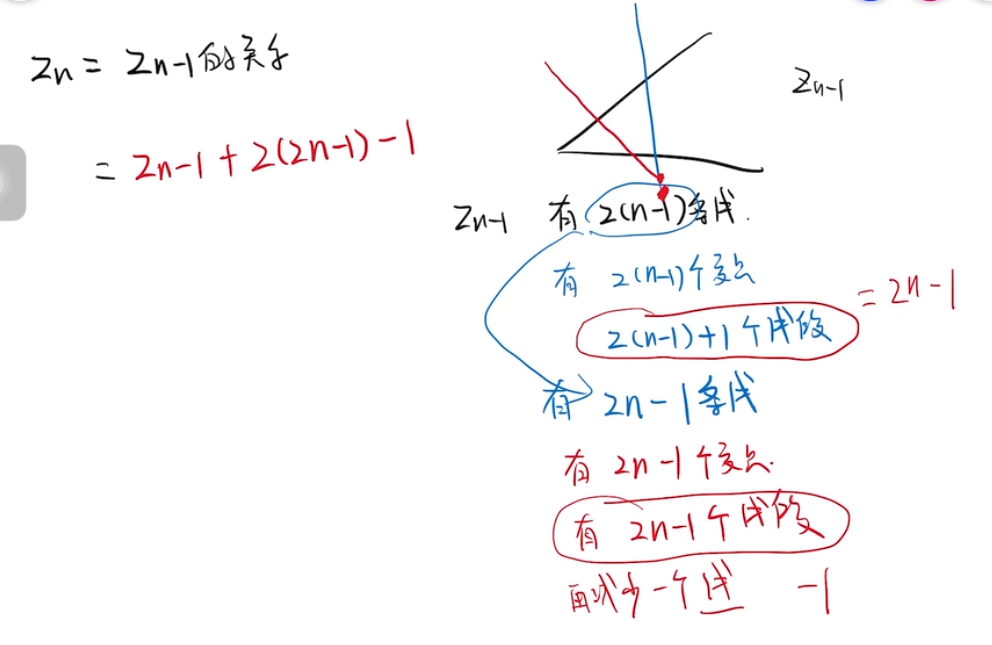 Zn = Zn-1的关系
= Zn-1 + 2(2n-1) - 1
Zn-1
Zn-1 有 2(n-1)条线.
有 2(n-1)个交点
2(n-1)+1个线段 = 2n-1
有 2n-1条线
有 2n-1个交点.
有 2n-1个线段
再减少一个线 -1